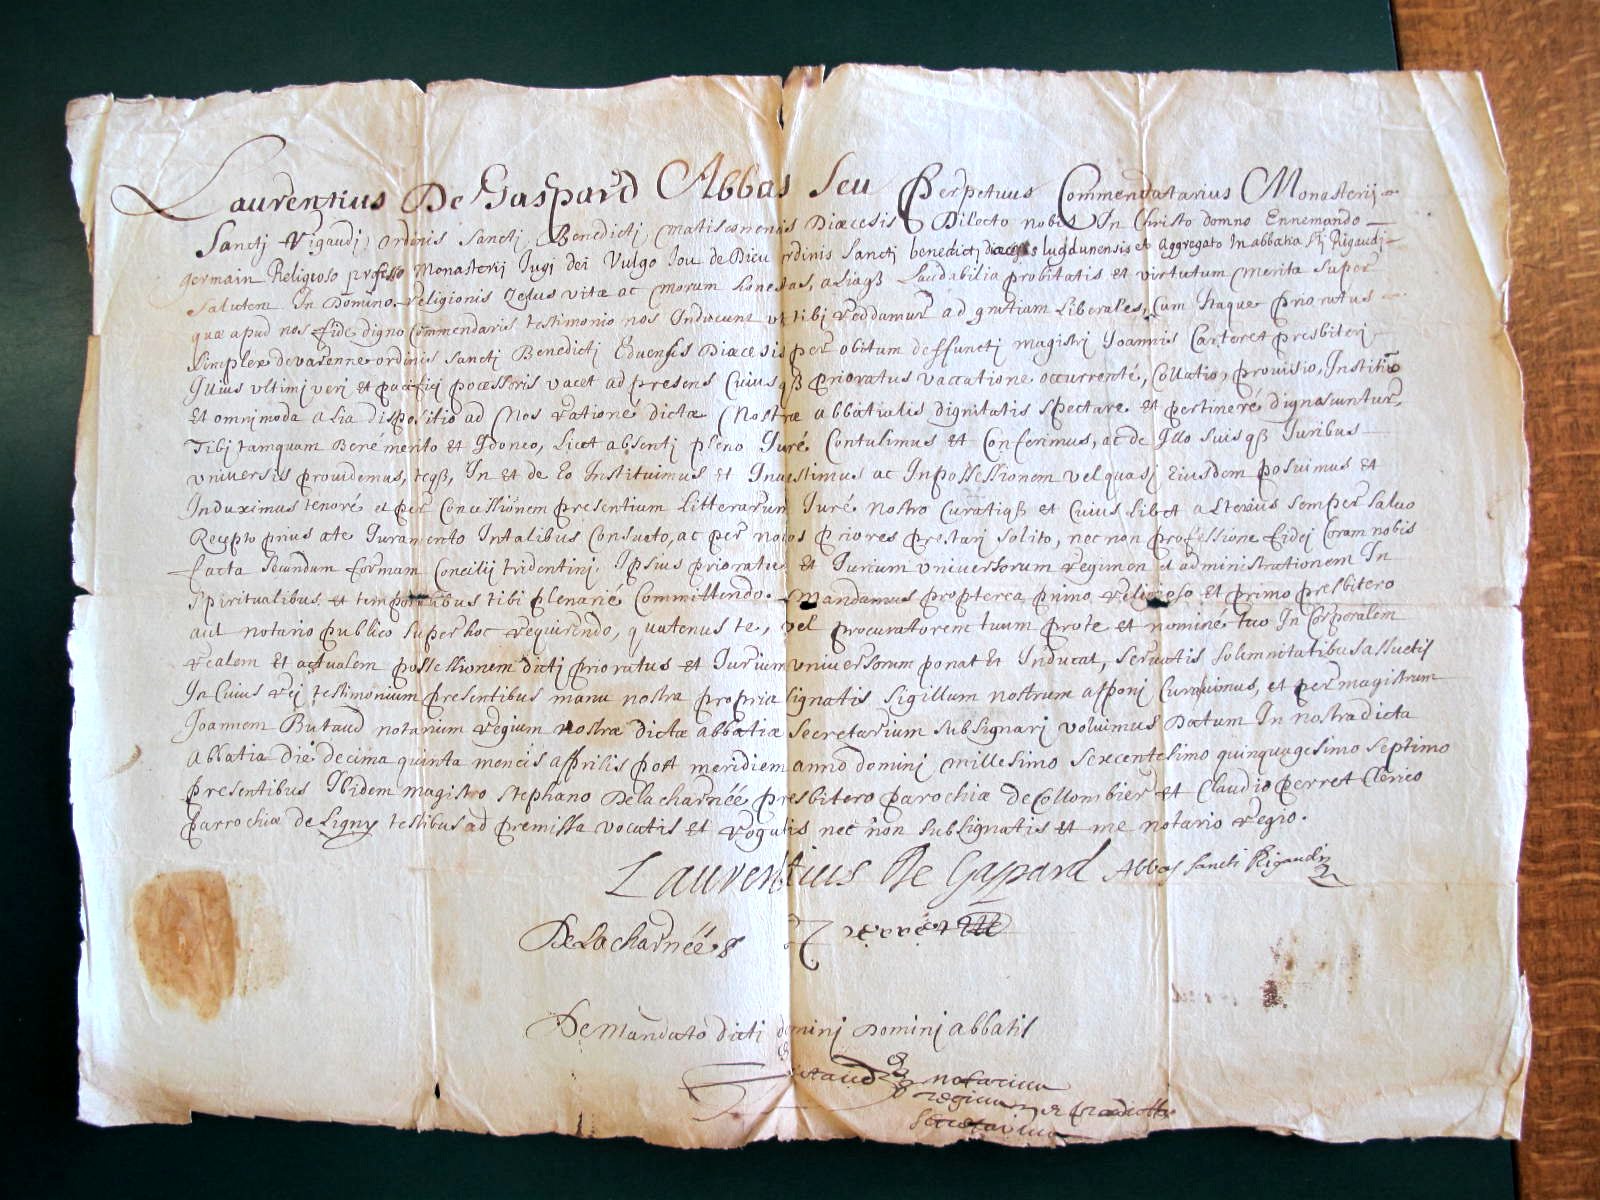 Laurentius De Gaspard Abbas Seu Perpetuus Commendatarius Monasterij
Sanctj Rigaudj, ordinis Sanctj Benedictj, matisconensis Diœcesis Dilecto nobis In Christo domno Ennemando
germain Religioso professo Monasterij Jugi dei Vulgo Jou de Dieu ordinis Sanctj benedictj diœcesis lugdunensis et aggregato In abbatia Stj Rigaudj
Salutem In Domino. religionis zelus vitæ ac morum honestas, aliaqȝ Laudabilia probitatis et virtutum merita super
quæ apud nos fide digno Commendaris testimonio nos Inducunt ut tibj reddamur ad gratiam Liberales, Cum Itaque prioratus
Simplex devarenne ordinis Sanctj Benedictj Eduensis Diœcesis per obitum deffunctj magistrj Joannis Carteret presbiterj
Illius vltimj verj et pacificj pocessoris vacet ad presens Cuiusqȝ prioratus vaccatione occurrenté, Collatio, provisio, Institutio
Et omnimoda alia dispositio ad Nos rationé dictæ Nostræ abbatialis dignitatis spectaré et pertineré dignascuntur,
Tibj tamquam Benémerito et Idoneo, licet absentj pleno Juré Contulimus et Conferimus, ac de Illo suisqȝ Juribus
vniversis providemus, teqȝ, In et de Eo Instituimus et Investimus ac Inpossessionem vel quasj Eiusdem posuimus et
Induximus tenoré et per Concessionem presentium Litterarum Juré nostro Curatiqȝ et Cuius libet alterius semper saluo
Recepto prius a te Juramento Intalibus Consueto, ac per novos priores prestarj solito, nec non professione fidej Coram nobis
facta secundum formam Concilij tridentinj. Ipsius prioratus et Jurium vniversorum regimen et administrationem In
Spiritualibus et temporalibus tibi plenarié Committendo. Mandamus propterea primo religioso et primo presbitero
aut notario publico super hoc requirendo, quatenus te, vel procuratorem tuum pro te et nominé tuo In Corporalem
realem et actualem possessionem dictj prioratus et Jurium vniversorum ponat et Inducat, servatis solemnitatibus assuetis
In Cuius rej testimonium presentibus manu nostra propria signatis sigillum nostrum apponj Curavimus, et per magistrum
Joannem Butaud notarium regium nostræ dictæ abbatiæ secretarium subsignarj voluimus Datum In nostra dicta
abbatia dié decima quinta mencis apprilis post meridiem anno dominj millesimo sexcentesimo quinquagesimo septimo
presentibus Ibidem magistro Stephano Delacharnéé presbitero parochiæ de Collombier et Claudio perret Clerico
parrochiæ de Ligny testibus ad premissa vocatis et rogatis nec non subsignatis et me notario regio.
Laurentius De Gaspard Abbas sancti Rigaudj
Delacharnéé perret
De Mandato dicti dominj Dominj abbatis
Butaud notarium
regium
secretarium